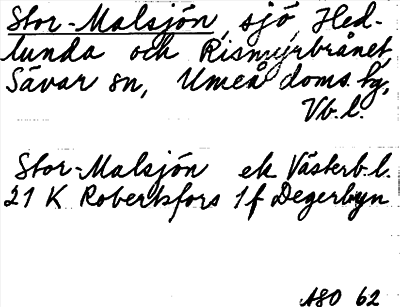 Stor-Malsjön, sjö, Hed-
lunda och Rismyrbrånet,
Sävar sn, Umeå doms. tg,
Vb. l.
Stor-Malsjön ek Västerb. l.
21 K Robertsfors 1 f Degerbyn
ASO 62